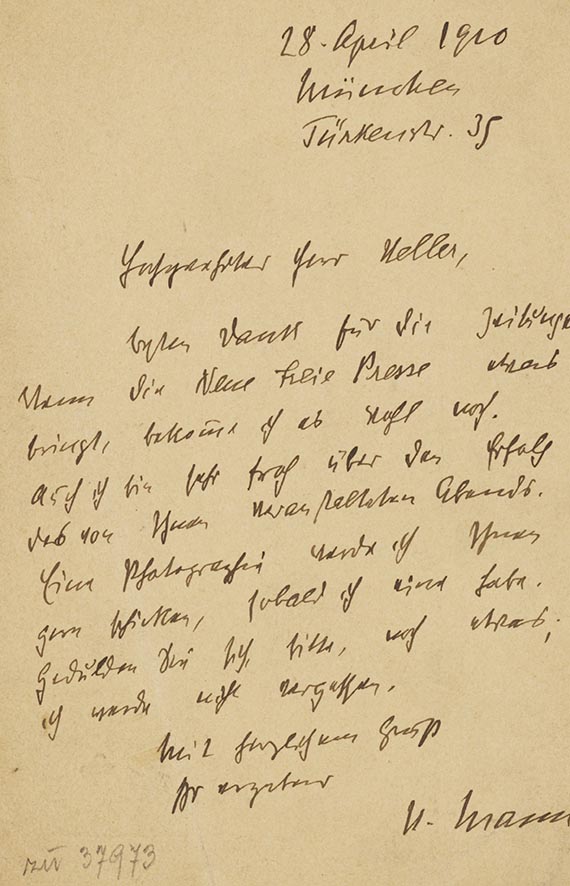 28. April 1910
München
Türkenstr. 35
Hochgeehrter Herr Heller,
besten Dank für die Zeitungen
Wenn die Neue Freie Presse etwas
bringt, bekomme ich es wohl noch.
Auch ich bin sehr froh über den Erfolg
des von Ihnen veranstalteten Abends.
Eine Photographie werde ich Ihnen
gern schicken, sobald ich eine habe.
Gedulden Sie sich, bitte, noch etwas;
ich werde nicht vergessen.
Mit herzlichem Gruß
Ihr ergebener
H. Mann
37973